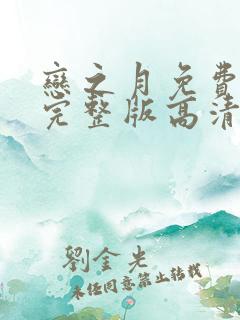 戀之月免費
完整版高清
劉金光
未經同意禁止轉載